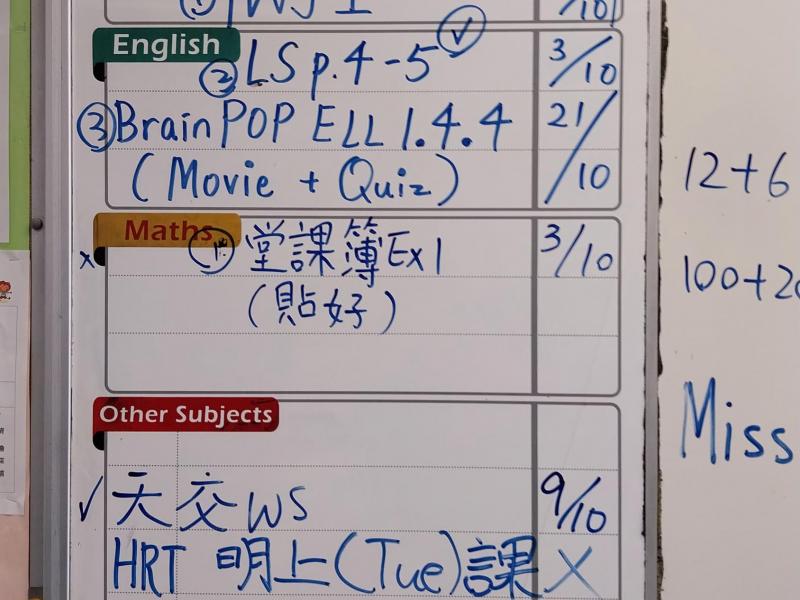 ① WS 1
/10
English
② LS p.4-5 ✓ 3/10
③ BrainPOP ELL 1.4.4 21/10
(Movie + Quiz)
Maths
x ① 堂課簿 Ex1 3/10
(貼好)
Other Subjects
✓ 天交WS 9/10
HRT 明上(Tue)課 X
12+6
100+20
Miss